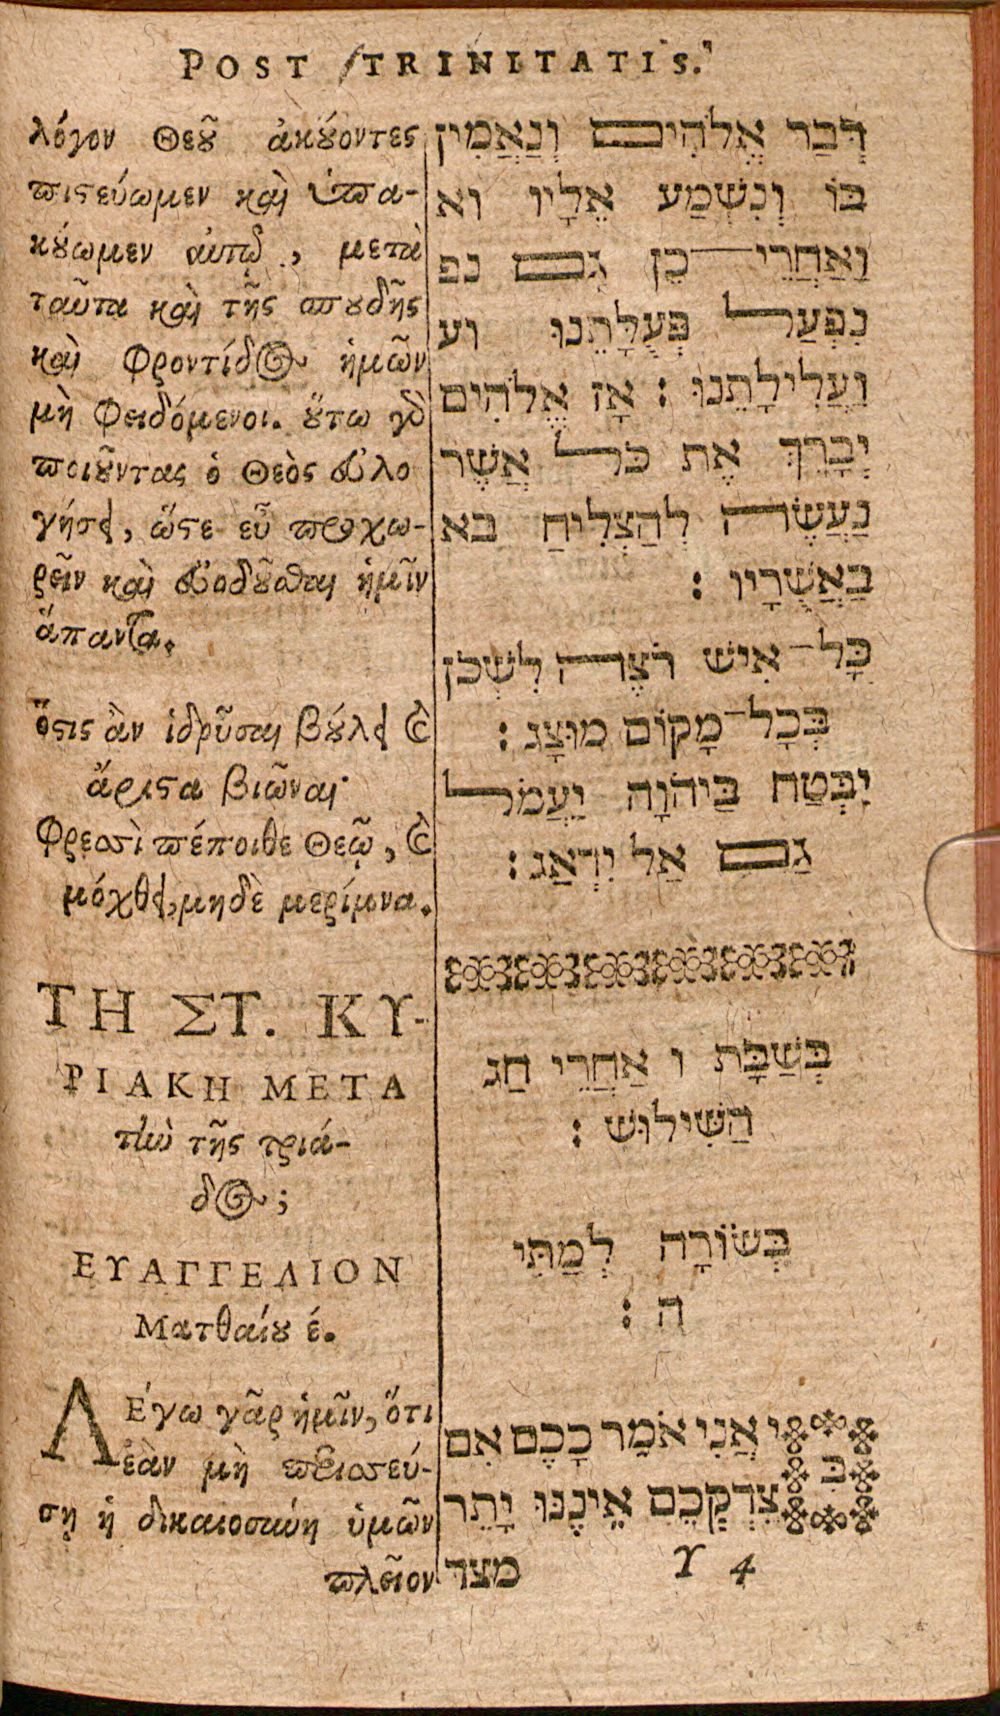 POST TRINITATIS.
λόγον Θεοῦ ἀκούοντες
πιστεύωμεν καὶ ὑπα-
κούωμεν αὐτῷ, μετὰ
ταῦτα καὶ τῆς σπουδῆς
καὶ Φροντίδος ἡμῶν
μὴ Φειδόμενοι. οὕτω γὸ
ποιοῦντας ὁ Θεὸς εὐλο
γήσει, ὥστε εὖ προχω-
ρεῖν καὶ εὐοδοῦσθαι ἡμῖν
ἅπαντα.
ὅστις ἂν ἱδρῦσαι βούλει καὶ
ἄριστα βιῶναι·
Φρεσὶ πέποιθε Θεῷ, καὶ
μόχθει, μηδὲ μερίμνα.
ΤΗ ΣΤ. ΚΥ-
ΡΙΑΚΗ ΜΕΤΑ
τὴν τῆς τριά-
δος;
ΕΥΑΓΓΕΛΙΟΝ
Ματθαίου έ.
ΛΕγω γὰρ ἡμῖν, ὅτι
ἐὰν μὴ περισσεύ-
σῃ ἡ δικαιοσύνη ὑμῶν
πλεῖον
דְּבַר אֱלֹהִים וְנַאֲמִין
בּוֹ וְנִשְׁמַע אֵלָיו וא
וַאַחֲרֵי־כֵן גַּם נפ
נִפְעַל פְּעֻלָּתֵנוּ וע
וַעֲלִילָתֵנוּ : אָז אֱלֹהִים
יְבָרֵךְ אֶת כֹּל אֲשֶׁר
נַעֲשֶׂה לְהַצְלִיחַ בא
בַּאֲשֻׁרָיו :
כָּל־אִישׁ רֹצֶה לִשְׁכֹּן
בְּכָל־מָקוֹם מוּצָג :
יִבְטַח בַּיהוָֹה יַעֲמֹל
גַּם אַל יִדְאַג :
בְּשַׁבָּת ו אַחֲרֵי חַג
הַשִּׁילוּשׁ :
בְּשׂוֹרָה לְמַתִּי
ה :
כִּי אֲנִי אֹמֵר כָכֶם אִם
צִדְקָכֶם אֵינֶנּוּ יָתֵר
מצד
Y 4